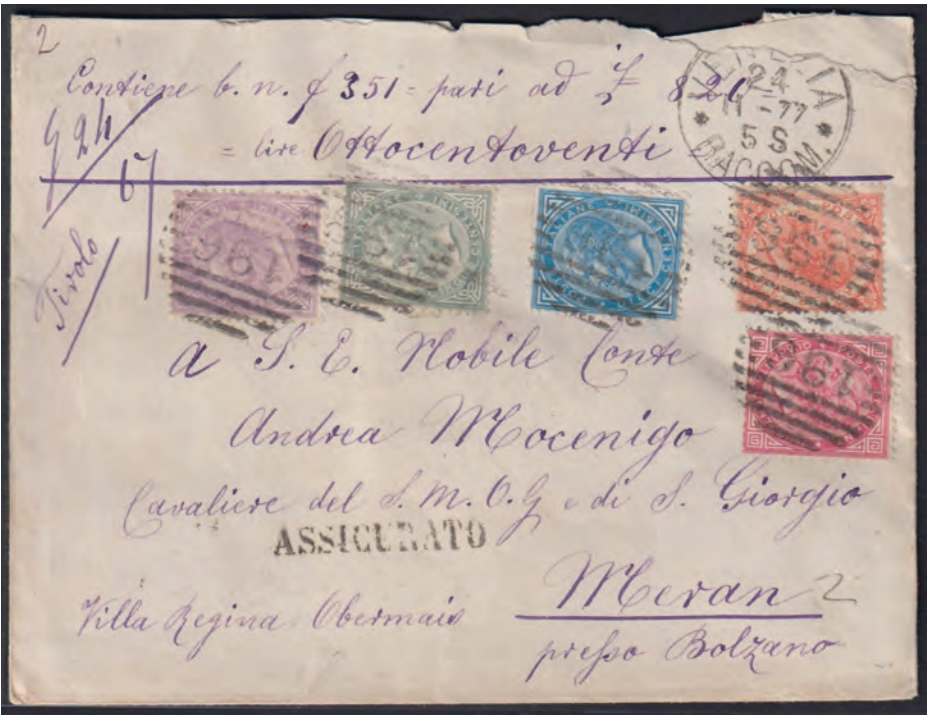 2
Contiene b. n. f 351 = pari ad £ 820 =
= lire Ottocentoventi
VENEZIA
24
11 - 77
5 S
* RACCOM. *
g 24
67
Tirolo
196
A S. E. Nobile Conte
Andrea Mocenigo
Cavaliere del S. M. O. G. e di S. Giorgio
ASSICURATO
Meran 2
Villa Regina Obermais
presso Bolzano